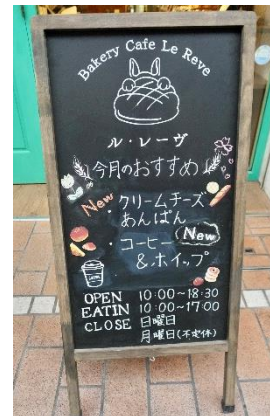 Bakery Cafe Le Reve
ル・レーヴ
今月のおすすめ
New
・クリームチーズ
あんぱん
・コーヒー
New
&ホイップ
OPEN 10:00~18:30
EATIN 10:00~17:00
CLOSE 日曜日
月曜日(不定休)